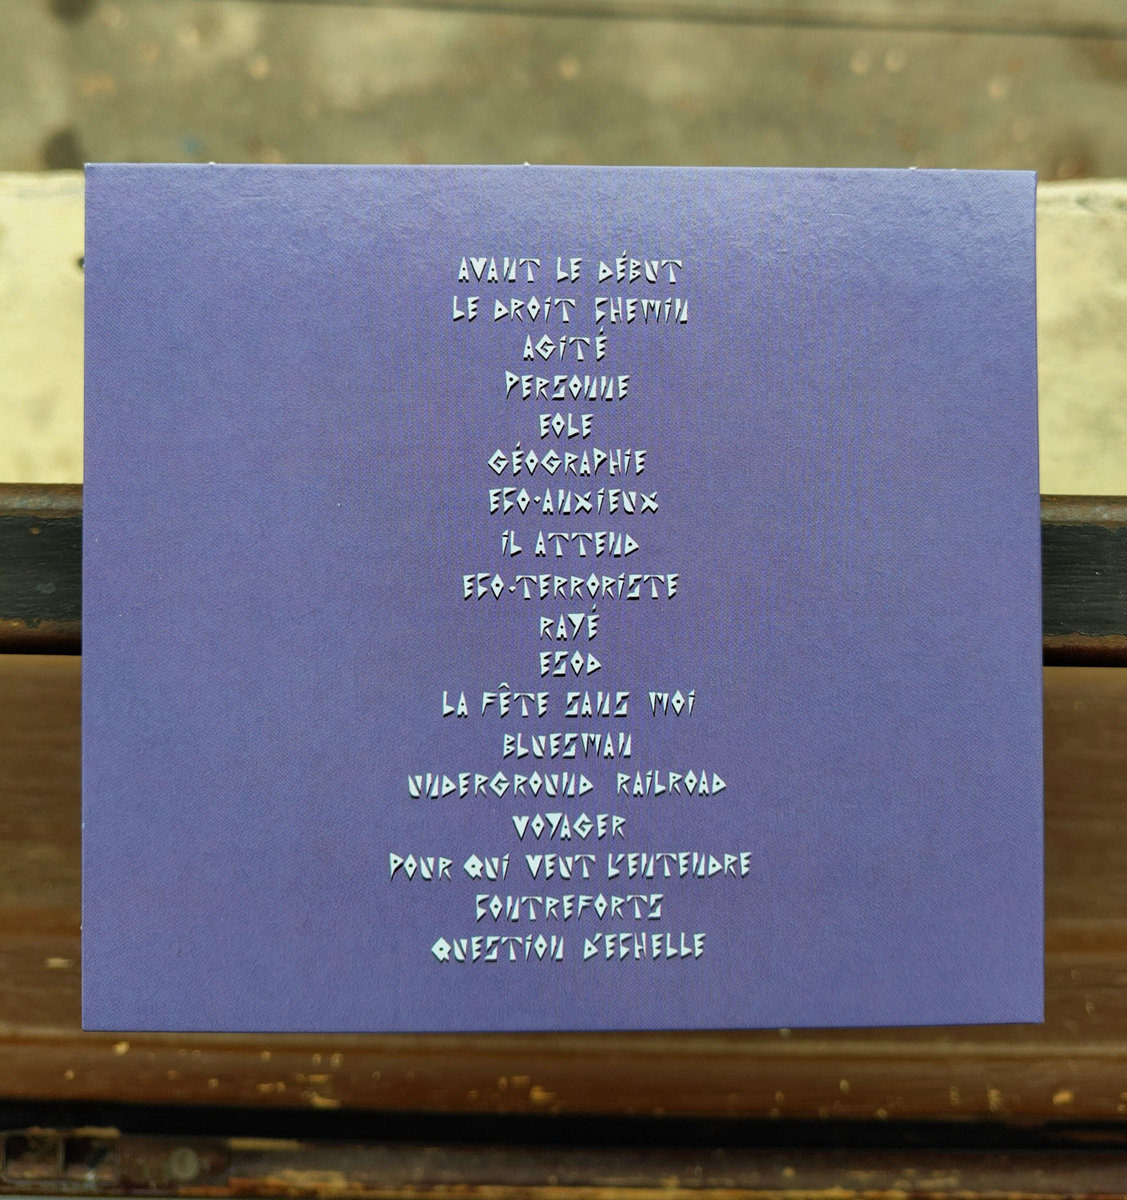 AVANT LE DÉBUT
LE DROIT CHEMIN
AGITÉ
PERSONNE
EOLE
GÉOGRAPHIE
ECO-ANXIEUX
IL ATTEND
ECO-TERRORISTE
RAYÉ
ESOD
LA FÊTE SANS MOI
BLUESMAN
UNDERGROUND RAILROAD
VOYAGER
POUR QUI VEUT L'ENTENDRE
CONTREFORTS
QUESTION D'ECHELLE